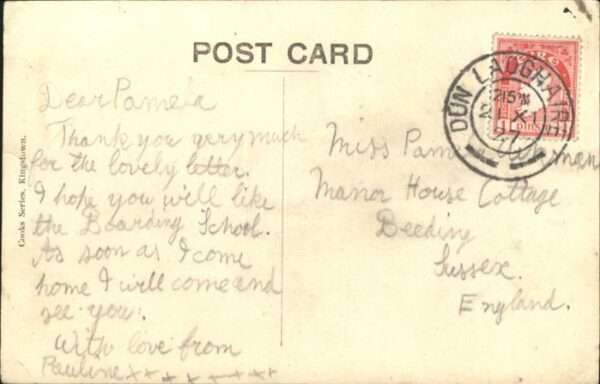 POST CARD
Dear Pamela
Thank you very much
for the lovely letter.
I hope you will like
the Boarding School.
As soon as I come
home I will come and
see you.
With love from
Pauline x x x x x x x
Cooks Series, Kingstown.
DUN LAOGHAIRE
215 PM
XI
Miss Pam
Manor House Cottage
Beeding
Sussex.
England.